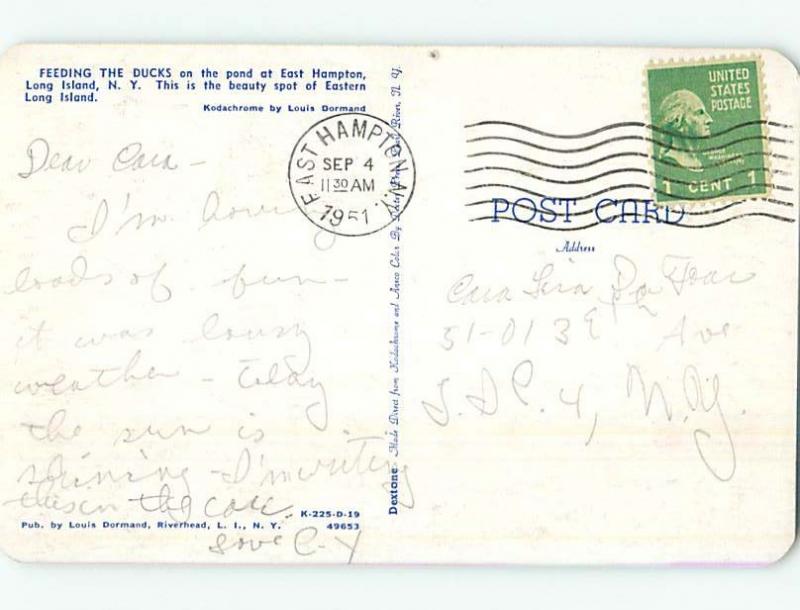 FEEDING THE DUCKS on the pond at East Hampton,
Long Island, N. Y. This is the beauty spot of Eastern
Long Island.
Kodachrome by Louis Dormand
Dear Cara -
I'm having
loads of fun -
it was lousy
weather - today
the sun is
shining - I'm writing
this in the car.
Love C-Y
K-225-D-19
Pub. by Louis Dormand, Riverhead, L. I., N. Y. 49653
Dextone Made Direct from Kodachrome and Ansco Color By Pearl River, N. Y.
EAST HAMPTON N.Y.
SEP 4
11 30 AM
1951
UNITED
STATES
POSTAGE
1 CENT 1
POST CARD
Address
Cara Lisa
51-01 39th Ave
L.I.C. 4, N.Y.